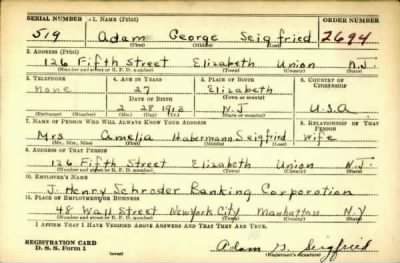 SERIAL NUMBER 1. NAME (Print) ORDER NUMBER
519 Adam George Seigfried 2694
(First) (Middle) (Last)
2. ADDRESS (Print)
126 Fifth Street Elizabeth Union N.J.
(Number and street or R. F. D. number) (Town) (County) (State)
3. TELEPHONE 4. AGE IN YEARS 5. PLACE OF BIRTH 6. COUNTRY OF CITIZENSHIP
None 27 Elizabeth
DATE OF BIRTH (Town or county)
2 28 1912 N.J. U.S.A.
(Mo.) (Day) (Yr.) (State or country)
7. NAME OF PERSON WHO WILL ALWAYS KNOW YOUR ADDRESS 8. RELATIONSHIP OF THAT PERSON
Mrs Camelia Habermann Seigfried Wife
(Mr., Mrs., Miss) (First) (Middle) (Last)
9. ADDRESS OF THAT PERSON
126 Fifth Street Elizabeth Union N.J.
(Number and street or R. F. D. number) (Town) (County) (State)
10. EMPLOYER'S NAME
J. Henry Schroder Banking Corporation
11. PLACE OF EMPLOYMENT OR BUSINESS
48 Wall Street New York City Manhattan N.Y
(Number and street or R. F. D. number) (Town) (County) (State)
I AFFIRM THAT I HAVE VERIFIED ABOVE ANSWERS AND THAT THEY ARE TRUE.
REGISTRATION CARD
D. S. S. Form 1 (over) Adam G. Seigfried
(Registrant's signature)